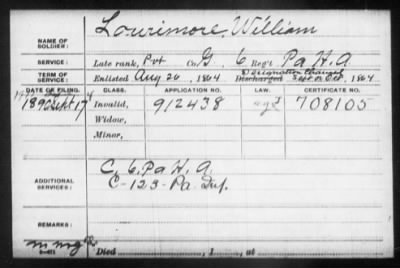 NAME OF SOLDIER: Lourimore, William
SERVICE: Late rank, Pvt Co. G, 6 Reg't Pa H. A
Designation Changed
TERM OF SERVICE: Enlisted Aug 26, 1864 Discharged Sept or Oct, 1864
DATE OF FILING. CLASS. APPLICATION NO. LAW. CERTIFICATE NO.
1890 Sept 17 Invalid, 912438 708105
Widow,
Minor,
ADDITIONAL SERVICES: C. 6, Pa H. A.
C-123-Pa Inf.
REMARKS:
Died , 1 , at